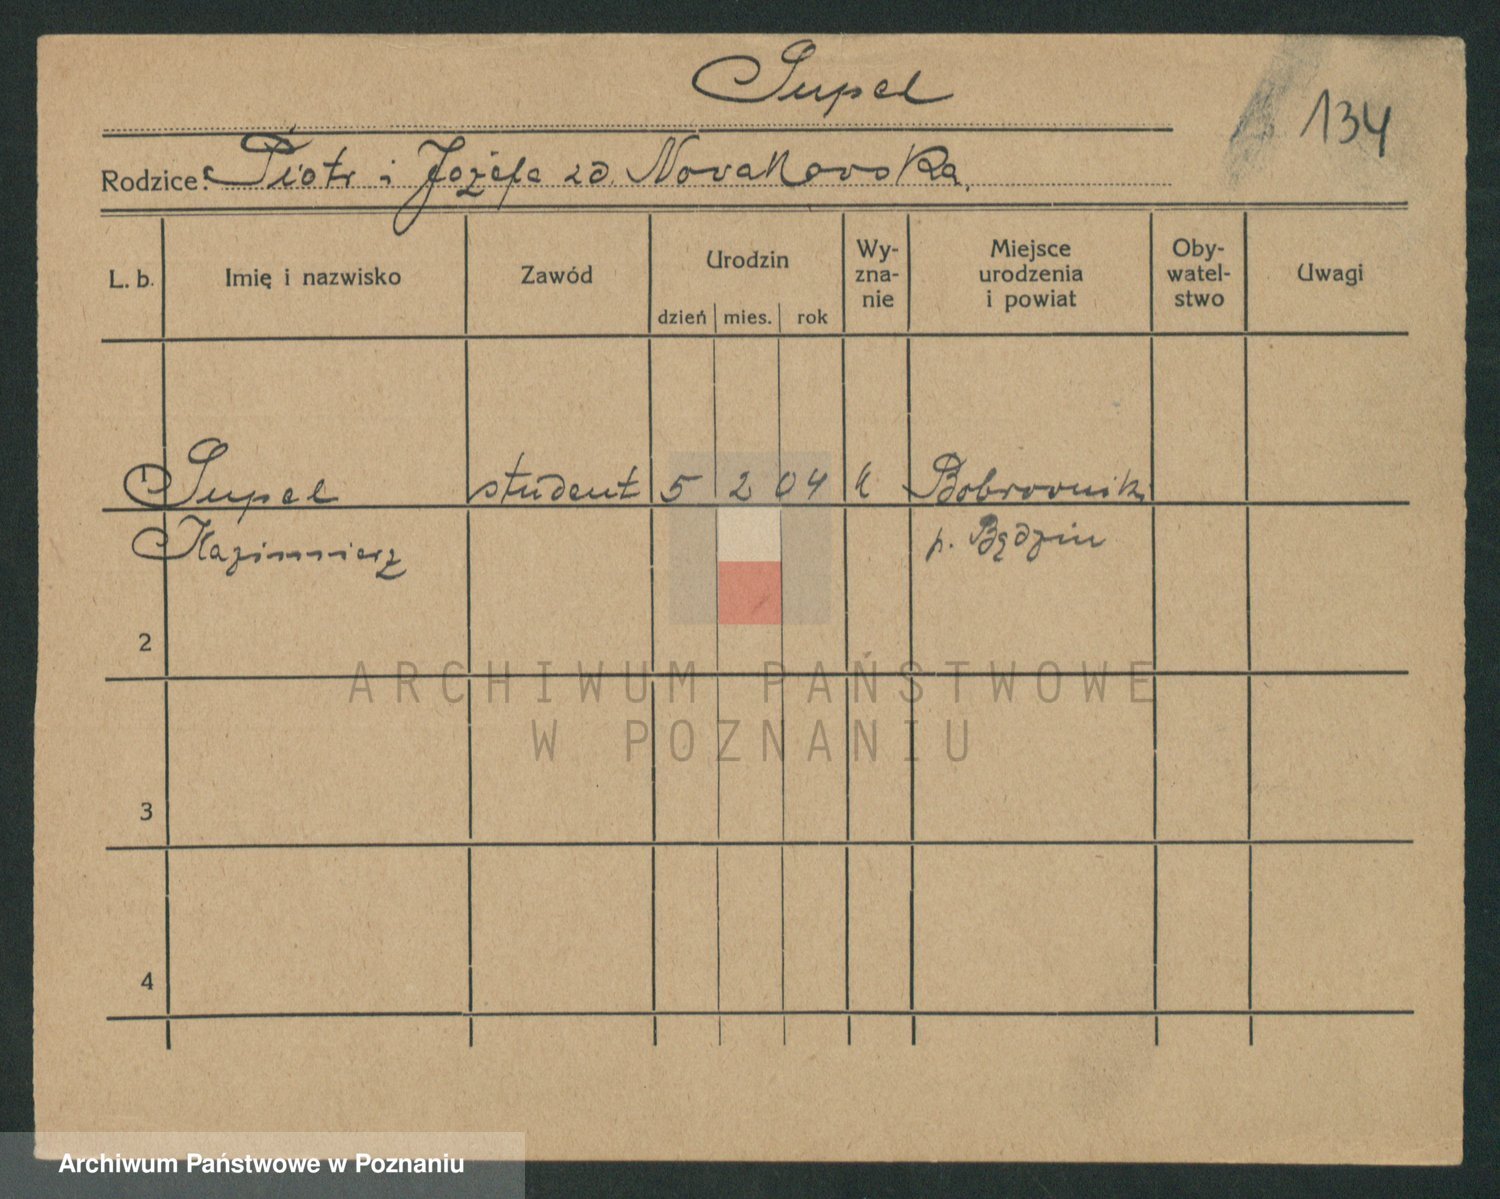 Supel
134
Rodzice: Piotr i Józefa zd. Novakovska.
L. b. Imię i nazwisko Zawód Urodzin dzień mies. rok Wy-zna-nie Miejsce urodzenia i powiat Oby-watel-stwo Uwagi
1 Supel student 5 2 04 k Bobrovniki
Kazimierz p. Będzin
2
ARCHIWUM PAŃSTWOWE
W POZNANIU
3
4
Archiwum Państwowe w Poznaniu